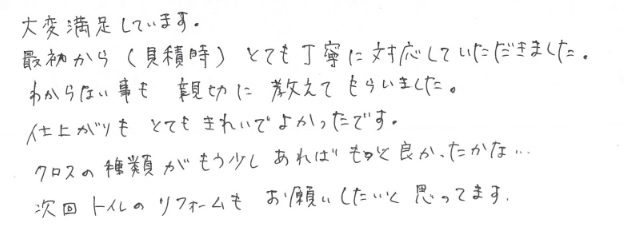 大変満足しています。
最初から（見積時）とても丁寧に対応していただきました。
わからない事も 親切に 教えて もらいました。
仕上がりも とても きれいで よかったです。
クロスの種類が もう少し あれば もっと良かったかな…
次回 トイレの リフォームも お願いしたいと 思ってます.